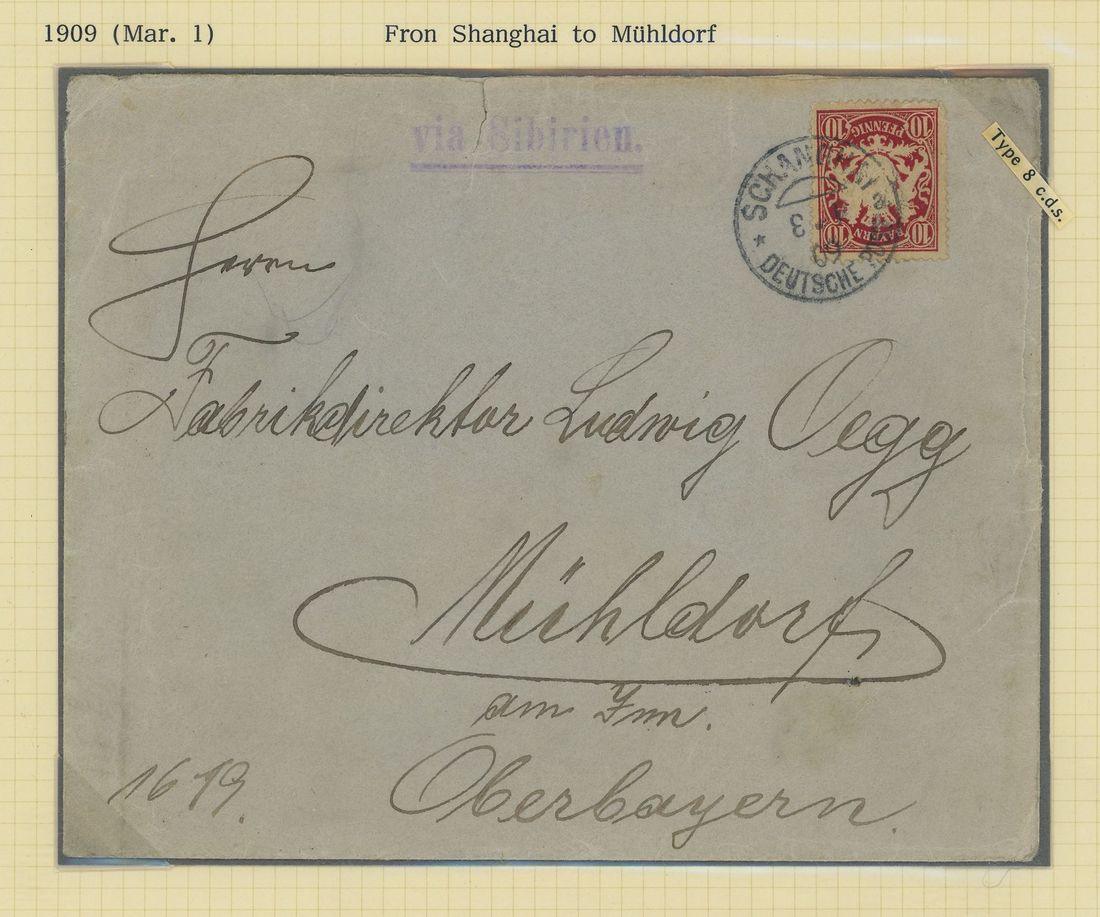 1909 (Mar. 1) Fron Shanghai to Mühldorf
via Sibirien.
10 PFENNIG 10
10 BAYERN 10
SCHANGHAI
DEUTSCHE POST
Type 8 c.d.s.
Herrn
Fabrikdirektor Ludwig Oegg
Mühldorf
am Inn.
Oberbayern.